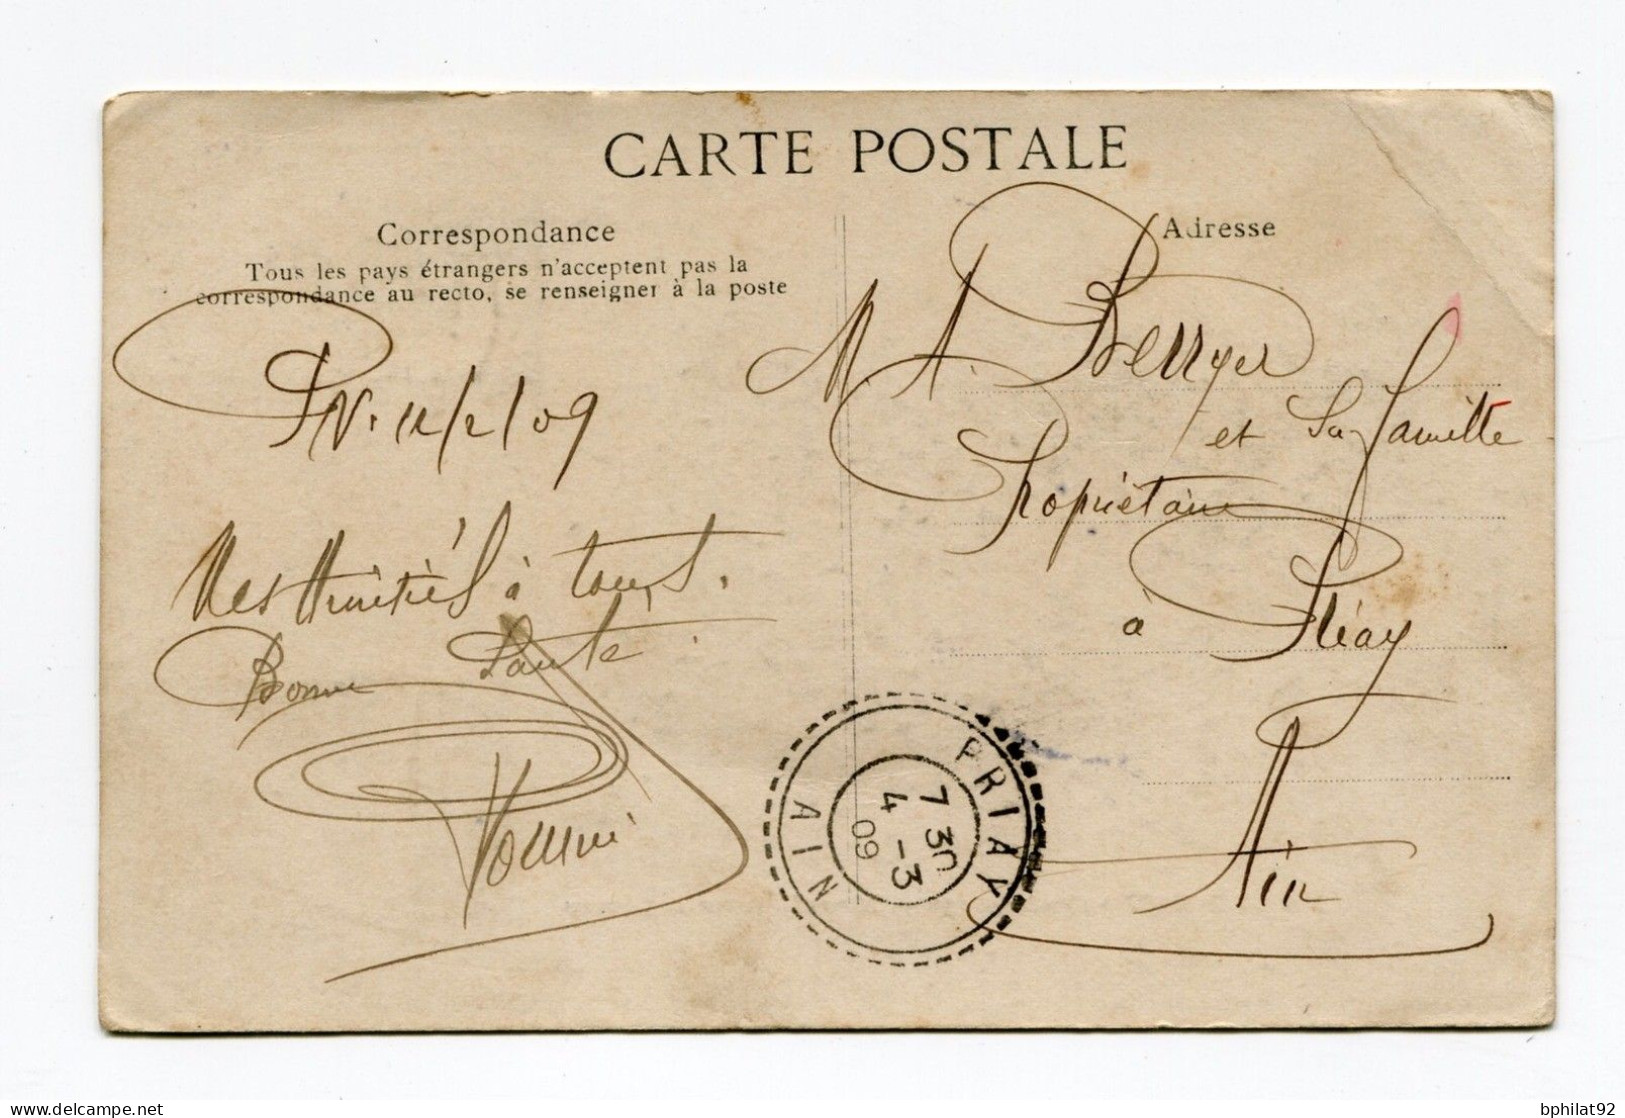 CARTE POSTALE
Correspondance
Tous les pays étrangers n'acceptent pas la
correspondance au recto, se renseigner à la poste
PN. 12/2/09
Mes Amitiés à tous.
Bonne Santé
Adresse
M. A. Berryer
et Sa famille
Propriétaire
à Priay
Ain
PRIAY
7 30
4 -3
09
AIN
bphilat92